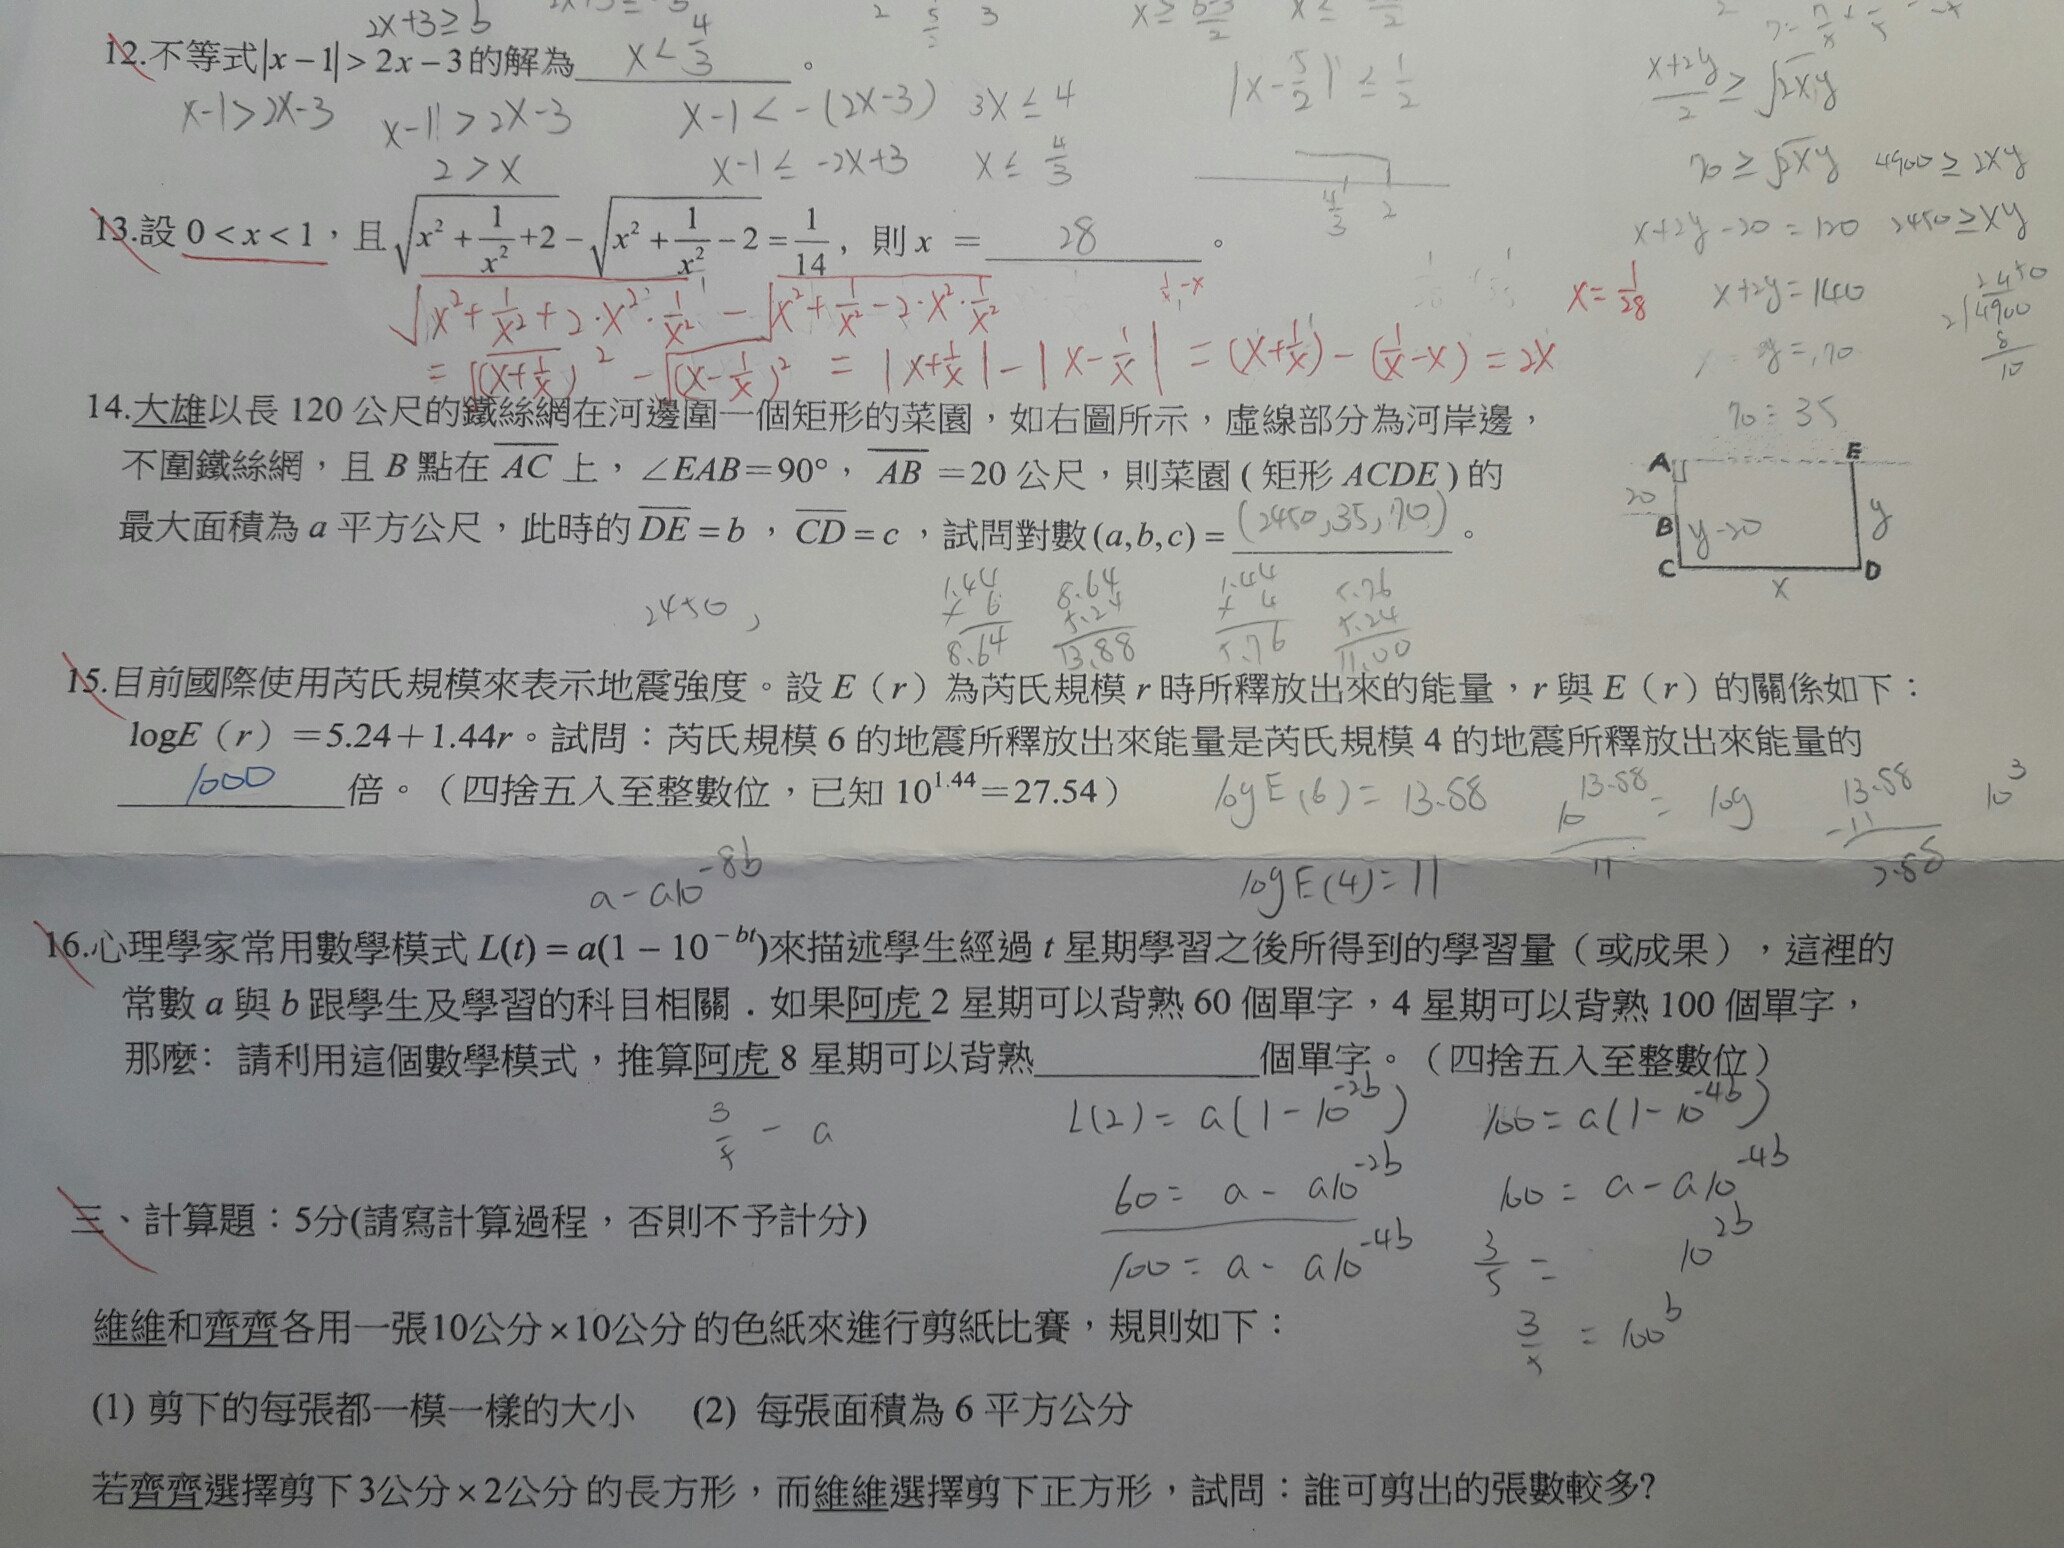 2x+3≥b
12.不等式|x−1|>2x−3的解為 x<4/3 。
x-1>2x-3 x-1|>2x-3 x-1<-(2x-3) 3x≤4
2>x x-1≤-2x+3 x≤4/3
|x-5/2|≤1/2
4/3 2
(x+2y)/2≥√2xy
70≥√2xy 4900≥2xy
x+2y-20=120 2450≥xy
x+2y=140
y=70
70=35
13.設 0<x<1,且√(x²+1/x²+2)−√(x²+1/x²−2)=1/14,則 x = 28 。
√(x²+1/x²+2·x²·1/x²) - √(x²+1/x²-2·x²·1/x²)
1/x-x
x=1/28
=√(x+1/x)² - √(x-1/x)² = |x+1/x|-|x-1/x| = (x+1/x)-(1/x-x)=2x
14.大雄以長 120 公尺的鐵絲網在河邊圍一個矩形的菜園,如右圖所示,虛線部分為河岸邊,
不圍鐵絲網,且 B 點在 AC 上,∠EAB=90°, AB =20 公尺,則菜園 ( 矩形 ACDE ) 的
最大面積為 a 平方公尺,此時的 DE = b , CD = c ,試問對數(a,b,c) = (2450,35,70) 。
A E
20
B y-20 y
C D
x
2450,
1.44 ×6 8.64
8.64 5.24 13.88
1.44 ×4 5.76
5.76 5.24 11.00
15.目前國際使用芮氏規模來表示地震強度。設 E(r)為芮氏規模 r 時所釋放出來的能量,r 與 E(r)的關係如下:
logE(r)=5.24+1.44r。試問:芮氏規模 6 的地震所釋放出來能量是芮氏規模 4 的地震所釋放出來能量的
1000 倍。(四捨五入至整數位,已知 10^1.44=27.54)
logE(6)=13.88 10^13.88 = log 13.88 10³
-11
11 2.88
logE(4)=11
a-a10^-8b
16.心理學家常用數學模式 L(t) = a(1 − 10^−bt)來描述學生經過 t 星期學習之後所得到的學習量(或成果),這裡的
常數 a 與 b 跟學生及學習的科目相關.如果阿虎 2 星期可以背熟 60 個單字,4 星期可以背熟 100 個單字,
那麼: 請利用這個數學模式,推算阿虎 8 星期可以背熟 個單字。(四捨五入至整數位)
3/5 - a
L(2)=a(1-10^-2b) 100=a(1-10^-4b)
60= a-a10^-2b 100=a-a10^-4b
100= a-a10^-4b 3/5= 10^2b
3/5 = 100^b
三、計算題:5分(請寫計算過程,否則不予計分)
維維和齊齊各用一張10公分×10公分的色紙來進行剪紙比賽,規則如下:
(1) 剪下的每張都一模一樣的大小 (2) 每張面積為 6 平方公分
若齊齊選擇剪下3公分×2公分的長方形,而維維選擇剪下正方形,試問:誰可剪出的張數較多?